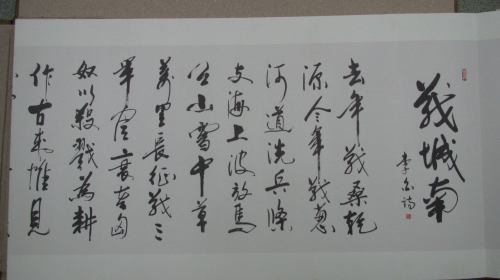 戰城南
李白詩
去年戰桑乾
源今年戰蔥
河道洗兵條
支海上波放馬
天山雪中草
萬里長征戰三
軍盡衰老匈
奴以殺戮為耕
作古來惟見